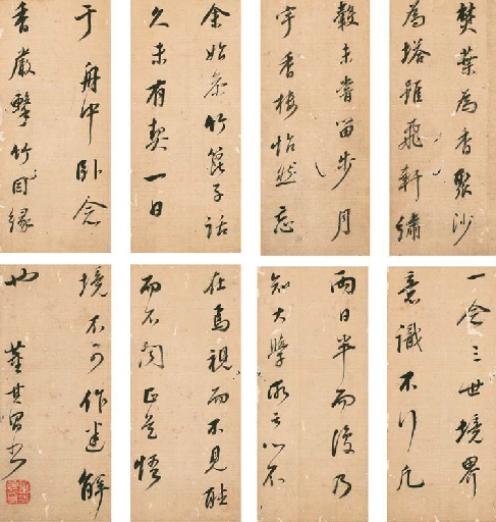 焚葉為香聚沙
為塔雖飛軒繡
轂未嘗留步月
宇香樓怡然忘
余始參竹篦子話
久未有契一日
于舟中臥念
香嚴擊竹因緣
一念三世境界
意識不行凡
兩日半而後乃
知大學所云心不
在焉視而不見聽
而不聞正是悟
境不可作迷解
也 董其昌書